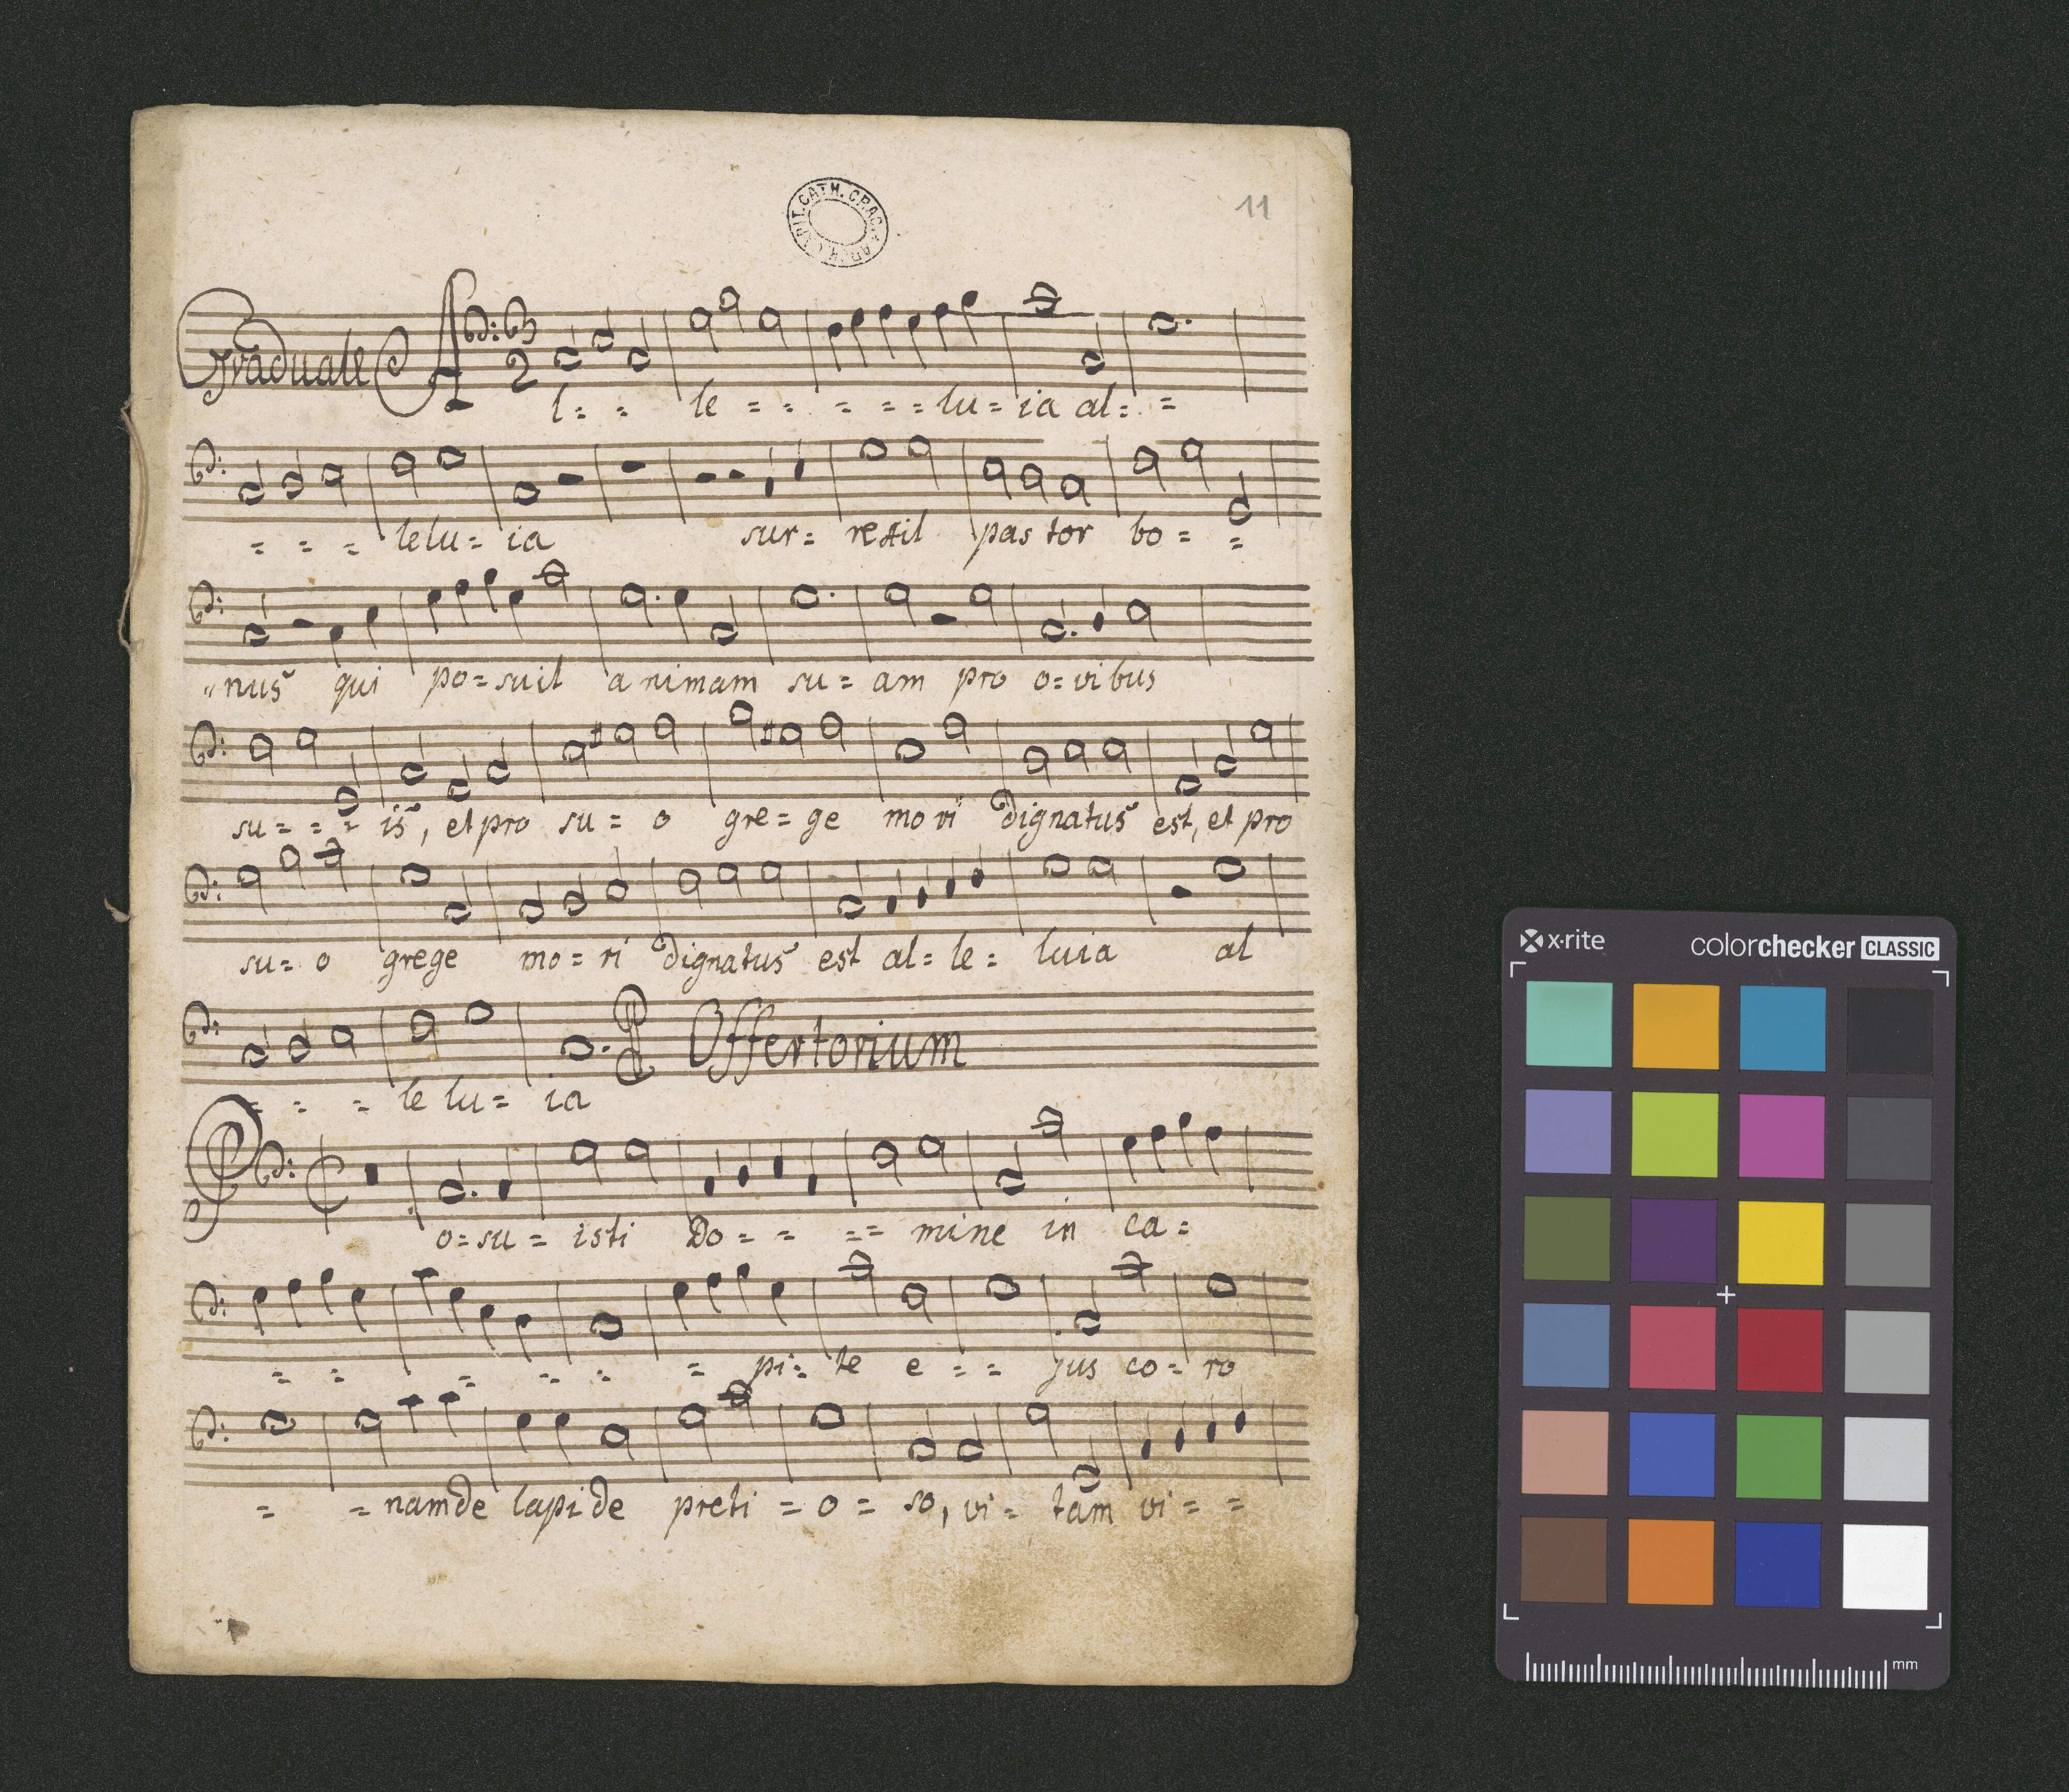 CAPIT. CATH. CRAC. * ARCH.
11
Graduale A 3 2
l = = le = = = = = lu = ia al = =
= = = le lu = ia sur = rexit pas tor bo = =
= nus qui po = suit a nimam su = am pro o = vi bus
su = = = is, et pro su = o gre = ge mo ri dignatus est, et pro
su = o grege mo = ri dignatus est al = le = luia al
= = = le lu = ia Offertorium
P o = su = isti Do = = = = mine in ca =
= = = = = = pi = te e = = jus co = ro
= = nam de lapi de preti = o = so, vi = tam vi = =
x·rite colorchecker CLASSIC
mm